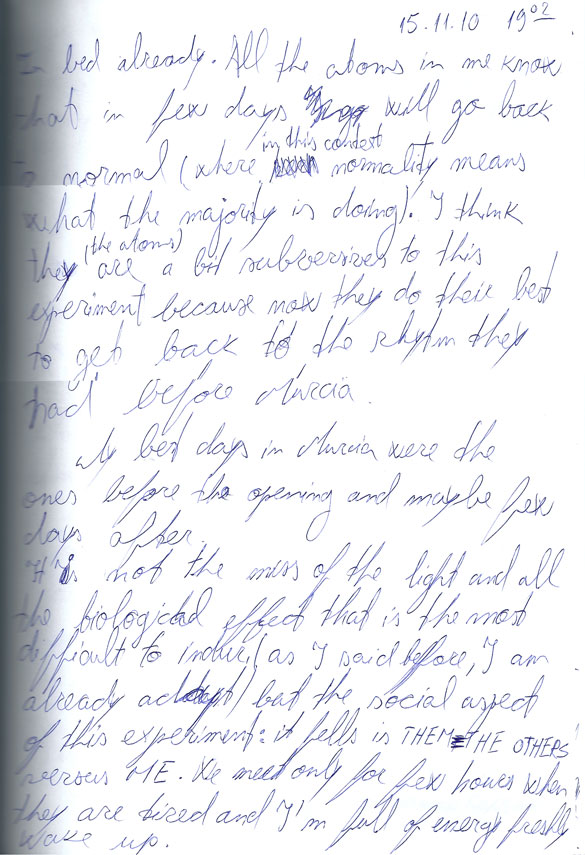 15.11.10 19⁰²
In bed already. All the atoms in me know
that in few days will go back
in this context
to normal (where normality means
what the majority is doing). I think
(the atoms)
they are a bit subversives to this
experiment because now they do their best
to get back to the rhytm they
had before Murcia.
My best days in Murcia were the
ones before the opening and maybe few
days after.
It is not the miss of the light and all
the biological effect that is the most
difficult to indure (as I said before, I am
already adapt) but the social aspect
of this experiment: it fells is THEM=THE OTHERS
versus ME. We meet only for few hours when
they are tired and I'm full of energy freshly
wake up.